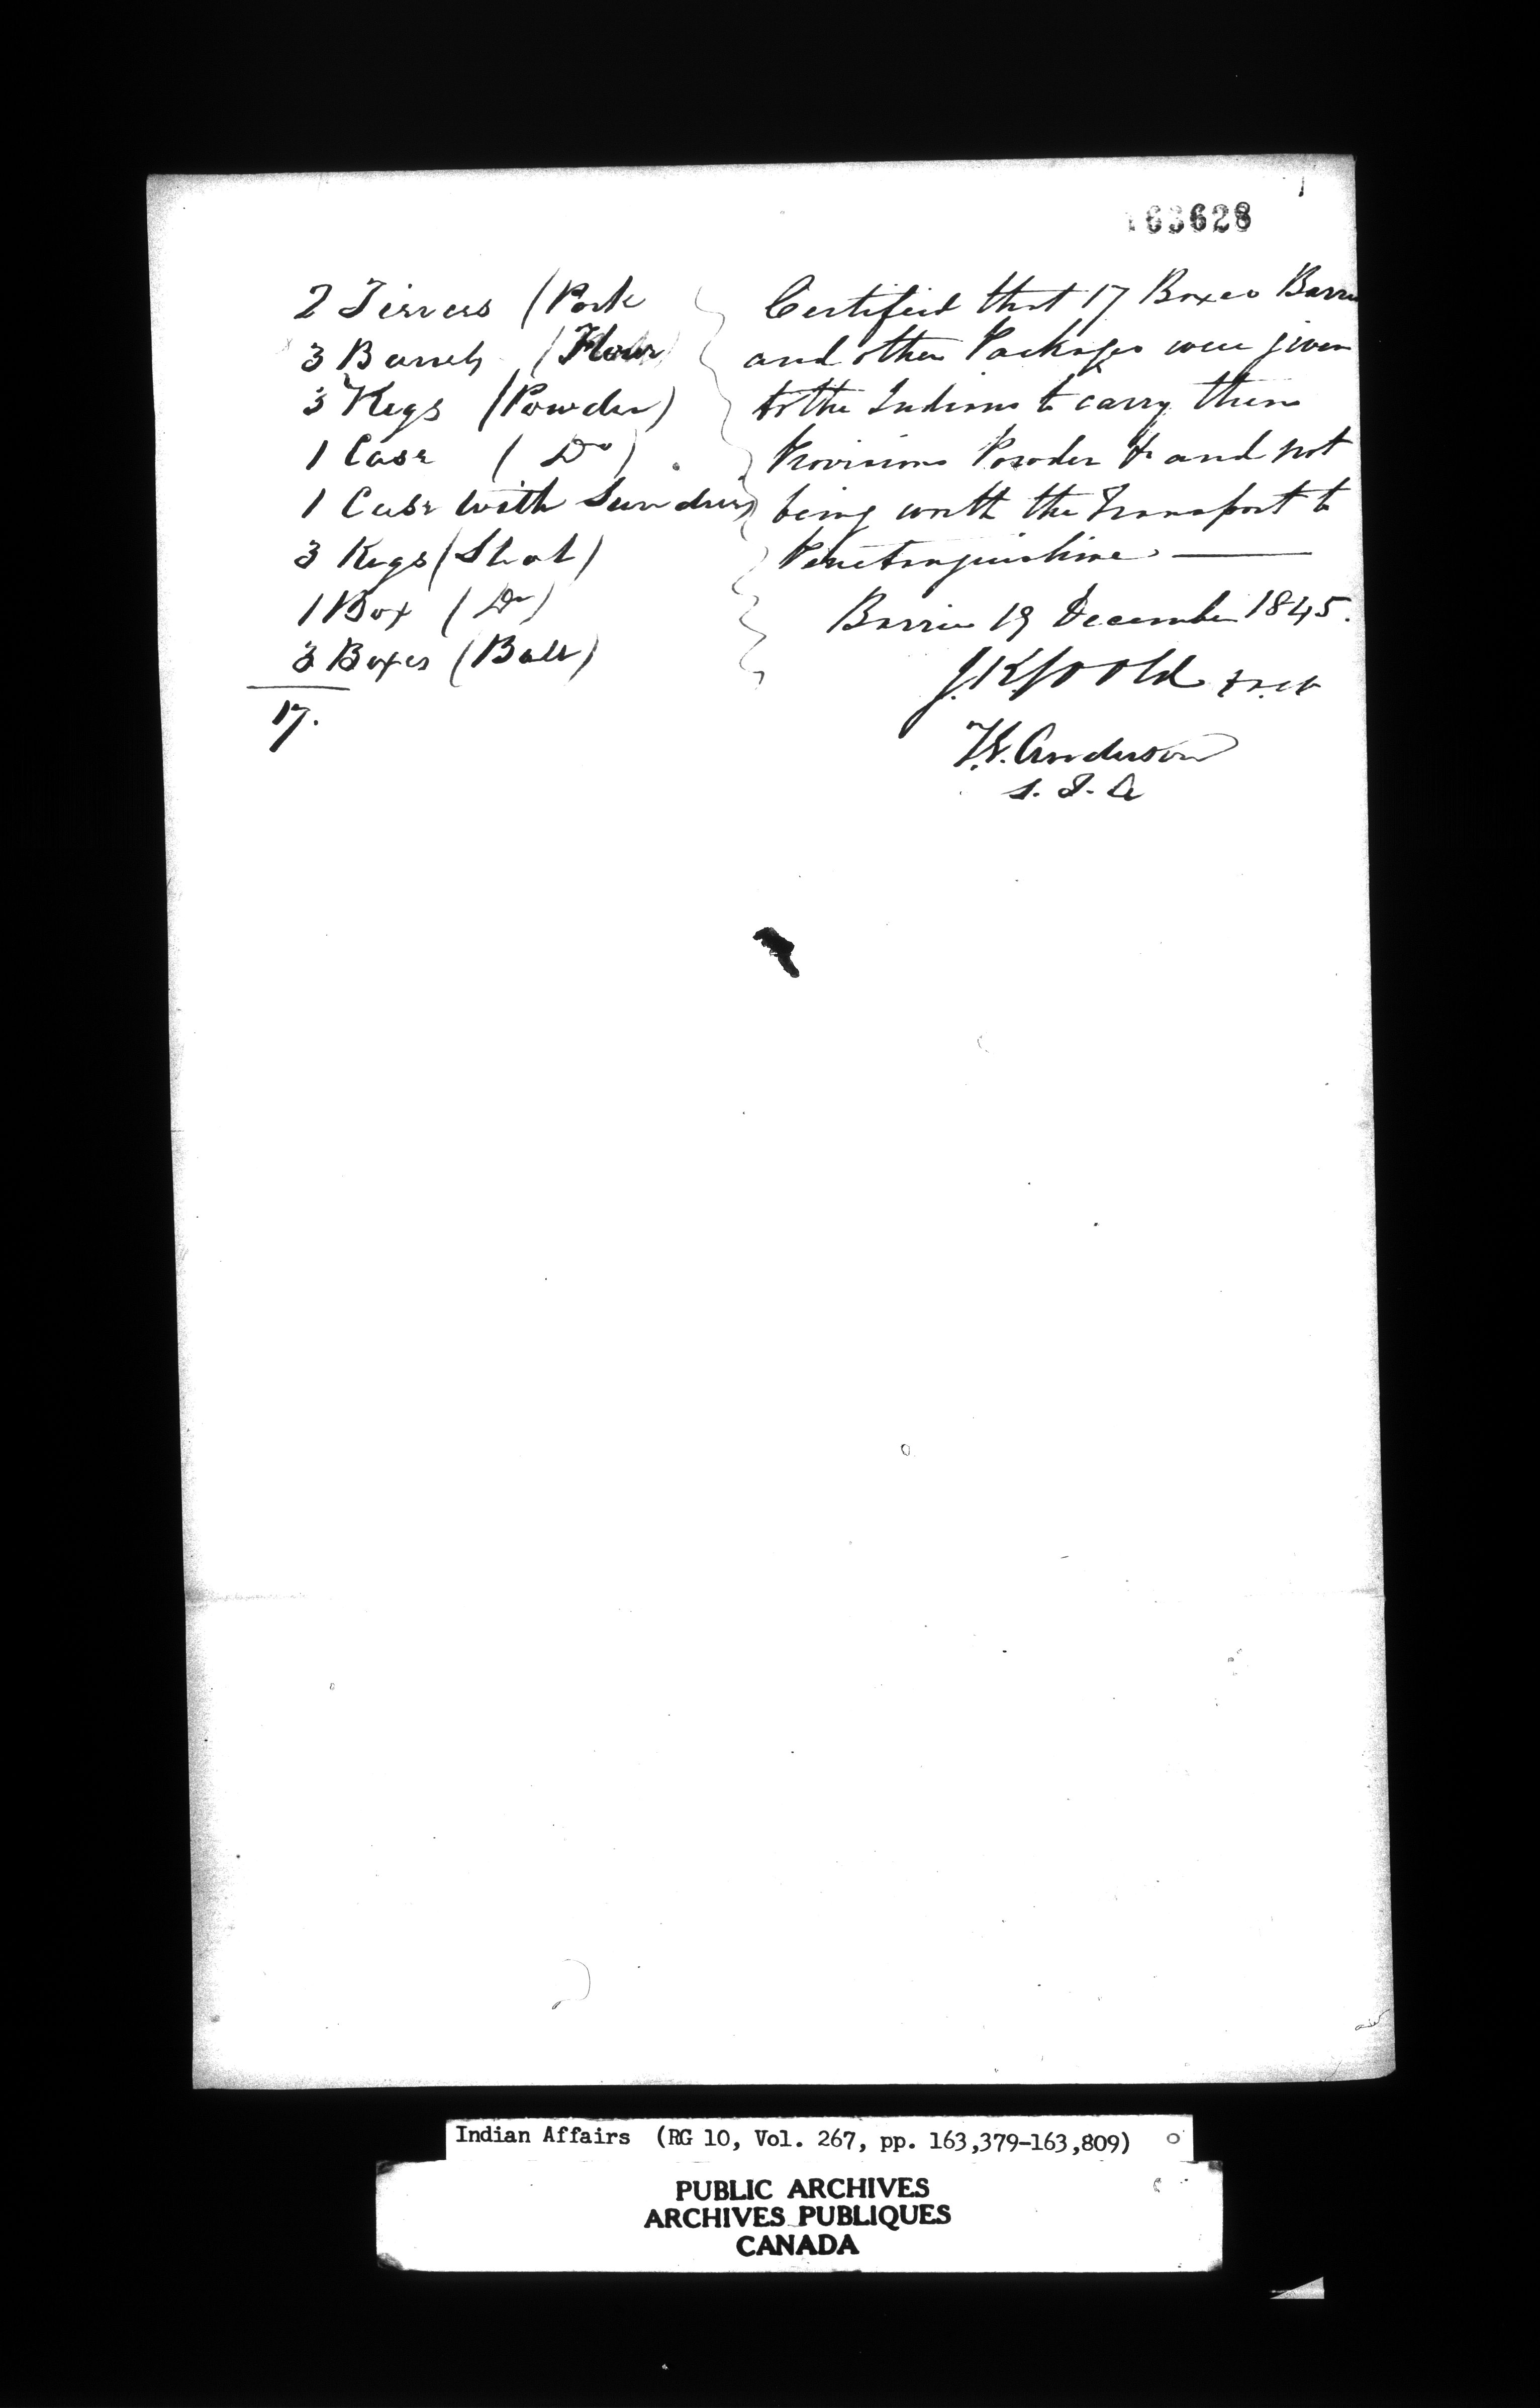 163628
2 Tierces (Pork
3 Barrels (Flour)
3 Kegs (Powder)
1 Case (Do)
1 Case with Sundries
3 Kegs (Shot)
1 Box (Do)
3 Boxes (Ball)
17.
Certified that 17 Boxes Barre
and other Packages were given
to the Indians to carry their
Provisions Powder & and not
being worth the Transport to
Penetanguishine
Barrie 19 December 1845.
T.G. Anderson
S. I. A
Indian Affairs (RG 10, Vol. 267, pp. 163,379-163,809)
PUBLIC ARCHIVES
ARCHIVES PUBLIQUES
CANADA